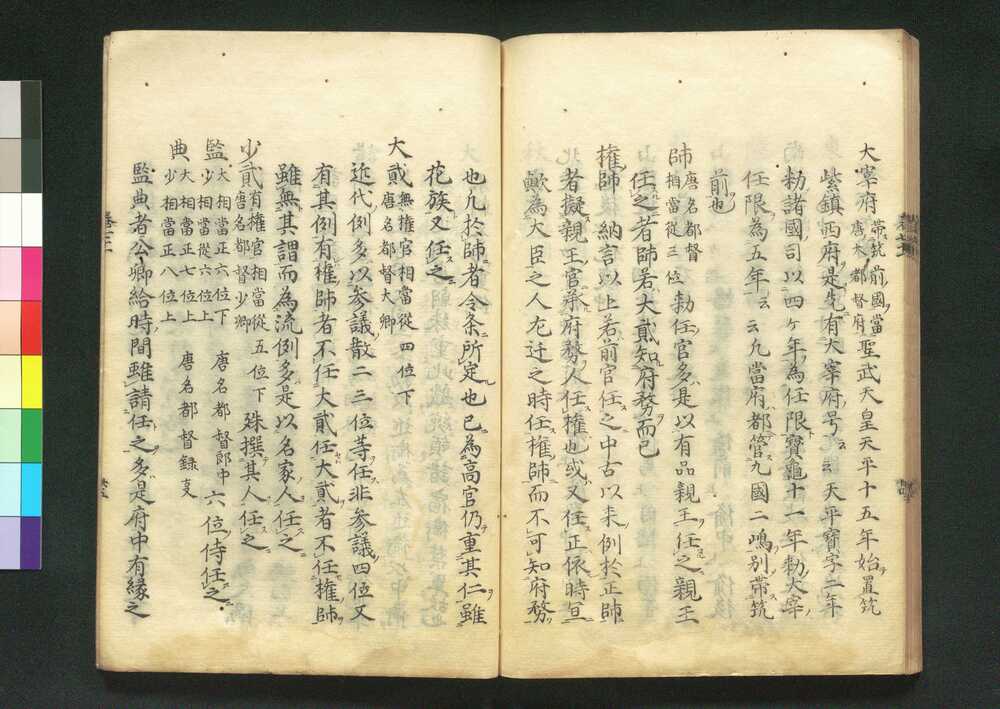 大宰府 帯筑前國當 唐大都督府 聖武天皇天平十五年始置筑
紫鎮西府是先有大宰府号云云天平寳字二年
勅諸國司以四ヶ年為任限寳龜十一年勅大宰
任限為五年云云凢當府都管九國二嶋別帯筑
前也
師 唐名都督 相當從三位 勅任官多是以有品親王任之親王
任之者師若大貳知府務而已
權師 納言以上若前官任之中古以来例於正師
者擬親王官葊府務人任權也或又任正依時亘
歟為大臣之人左迁之時任權師而不可知府務
也凢於師者令条所定也已為高官仍重其仁雖
花族又任之
大貳 無權官相當從四位下 唐名都督大卿
近代例多以参議散二三位等任非参議四位又
有其例有權師者不任大貳任大貳者不任權師
雖無其謂而為流例多是以名家人任之
少貳 有權官相當從五位下 唐名都督少卿 殊撰其人任之
監 大相當正六位下 少相當從六位上 唐名都督郎中 六位侍任之
典 大相當正七位上 少相當正八位上 唐名都督錄支
監典者公卿給時間雖請任之多是府中有縁之